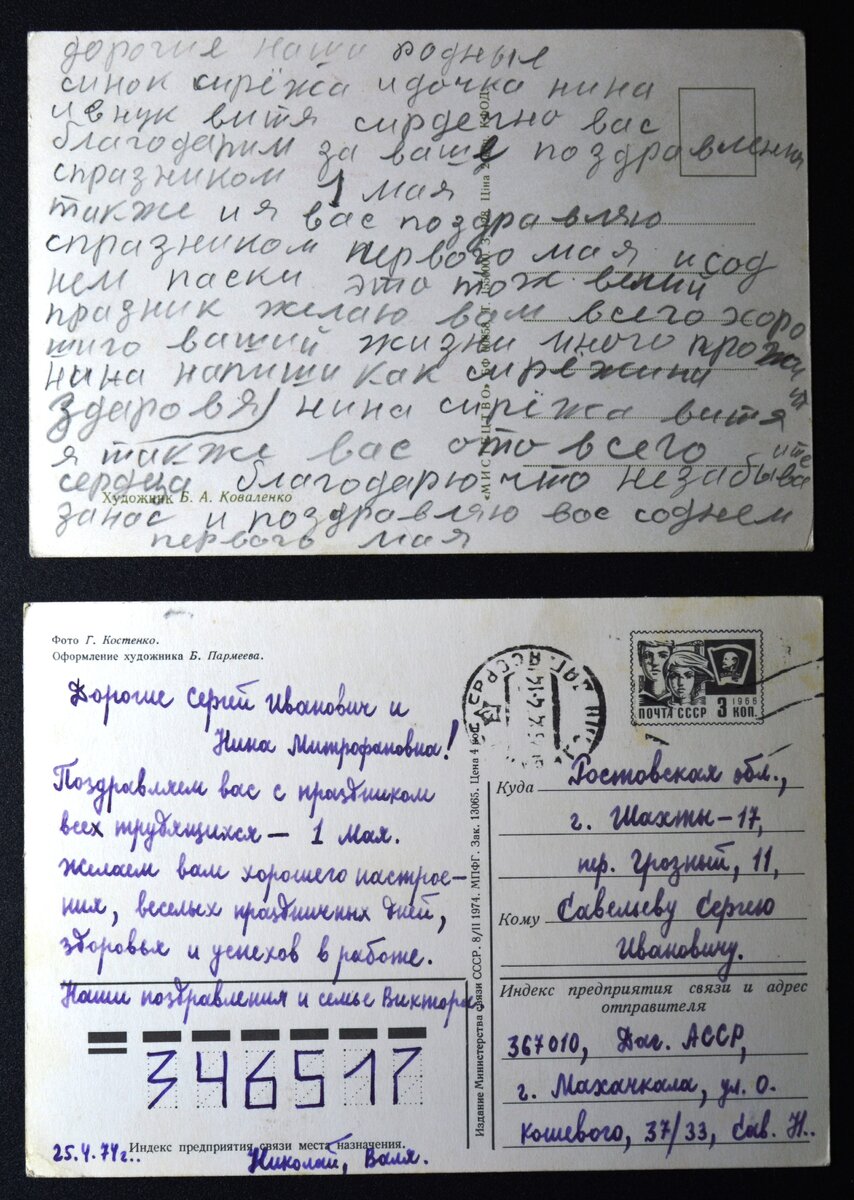 дорогия наши родныя
синок сирёжа и дочка нина
и внук витя сирдечно вас
благодарим за ваше поздравления
спразником 1 мая
также и я вас поздравляю
спразником первого мая исод
нем паски это тож велий
празник желаю вам всего хоро
шиго вашей жизни много прожить
нина напиши как сирёжини
здаровя нина сирёжа витя
я также вас ото всего
сердца благодарю что незабываите
занас и поздравляю вас соднем
первого мая
Художник Б. А. Коваленко
«МИСТЕЦТВО» БФ Ціна
Фото Г. Костенко.
Оформление художника Б. Пармеева.
Дорогие Сергей Иванович и
Нина Митрофановна!
Поздравляем вас с праздником
всех трудящихся — 1 Мая.
Желаем вам хорошего настрое-
ния, веселых праздничных дней,
здоровья и успехов в работе.
Наши поздравления и семье Виктора.
346517
Индекс предприятия связи места назначения.
25.4.74г..
Николай, Валя.
Издание Министерства связи СССР. 8/II 1974. МПФГ. Зак. 13065. Цена 4 коп.
ПОЧТА СССР 3 КОП.
1966
Куда Ростовская обл.,
г. Шахты-17,
пер. Грозный, 11,
Кому Савельеву Сергею
Ивановичу.
Индекс предприятия связи и адрес
отправителя
367010, Даг. АССР,
г. Махачкала, ул. О.
Кошевого, 37/33, Сав. Н..